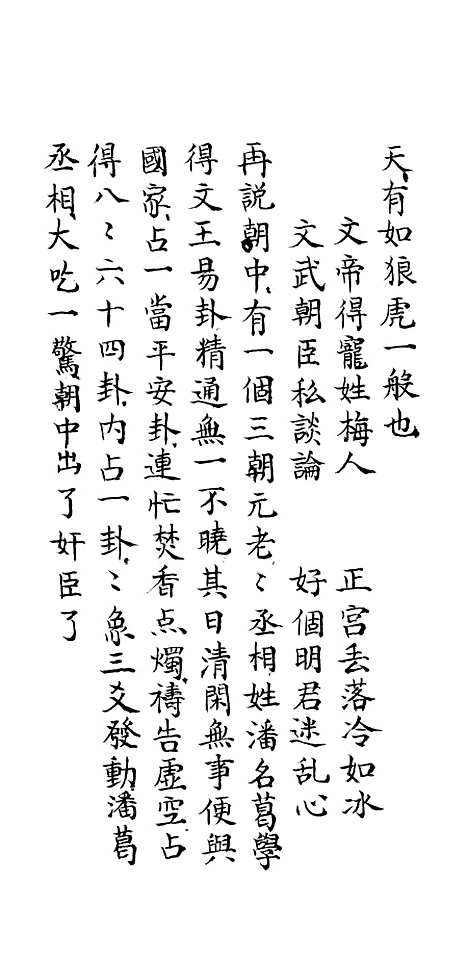 天、有如狼虎一般也
文帝得寵姓梅人　正宮丢落冷如冰
文武朝臣私談論　好個明君迷乱心
再説朝中、有一個三朝元老、〻丞相、姓潘名葛、學
得文王易卦、精通無一不曉、其日清閑無事、便與
國家、占一當平安卦、連忙焚香点燭、禱告虛空、占
得八〻六十四卦、内占一卦、〻象三爻發動、潘葛
丞相、大吃一驚、朝中出了奸臣了